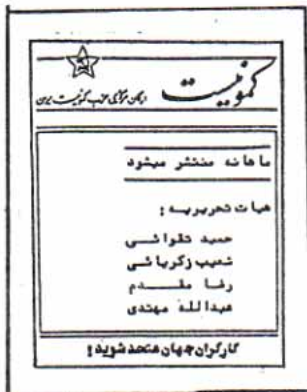 کمونیست
ارگان مرکزی حزب کمونیست ایران
ماهانه منتشر میشود
هیات تحریریه :
حمید تقوائی
شعیب زکریائی
رضا مقدم
عبدالله مهتدی
کارگران جهان متحد شوید!